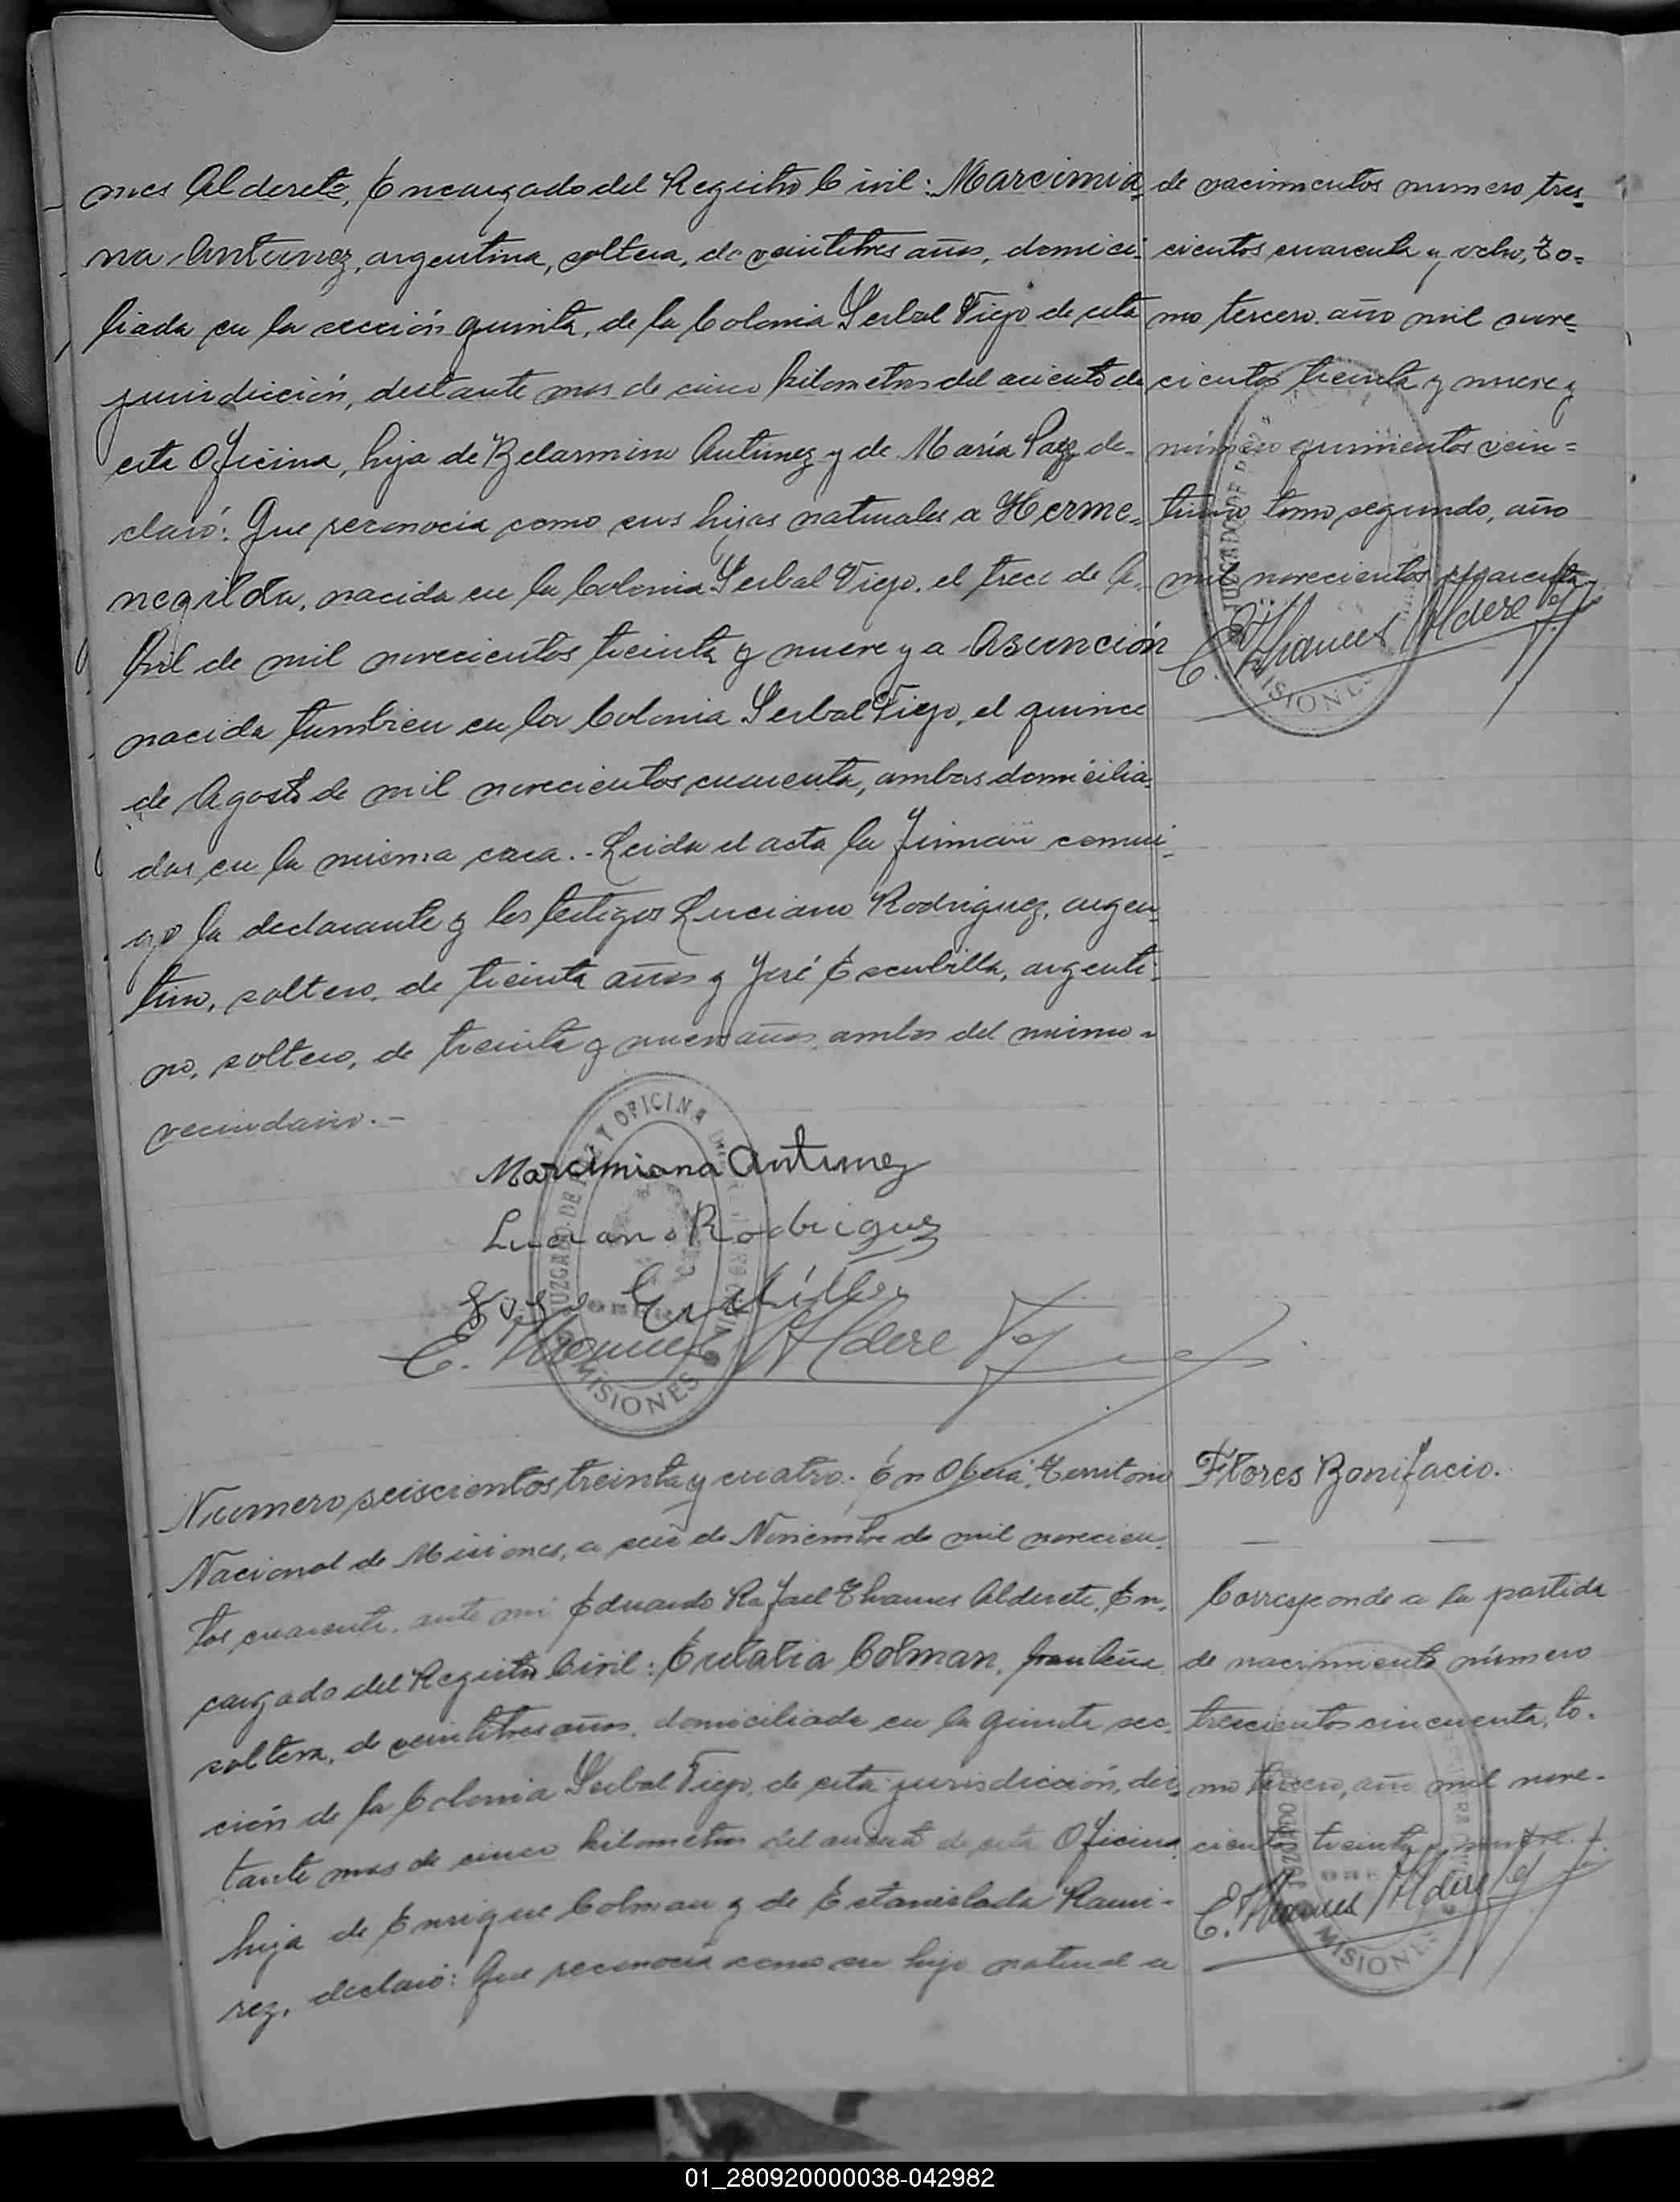 mes Alderete, Encargado del Registro Civil: Marcimia-
na Antunez, argentina, soltera, de veintitres años, domici-
liada en la sección quinta, de la Colonia Yerbal Viejo de esta
jurisdicción, distante mas de cinco kilometros del aciento de
esta Oficina, hija de Belarmino Antunez y de María Paez de-
claró: Que reconocia como sus hijas naturales a Herme-
negilda, nacida en la Colonia Yerbal Viejo, el trece de A-
bril de mil novecientos treinta y nueve y a Asunción
nacida tambien en la Colonia Yerbal Viejo, el quince
de Agosto de mil novecientos cuarenta, ambas domicilia-
das en la misma casa.- Leida el acta la firman conmi-
go la declarante y los testigos Luciano Rodriguez, argen-
tino, soltero, de treinta años y José Escubilla, argenti-
no, soltero, de treinta y nueve años, ambos del mismo -
vecindario.-
de nacimientos numero tres-
cientos cuarenta y ocho, to-
mo tercero, año mil nove-
cientos treinta y nueve y
número quinientos vein-
tiuno tomo segundo, año
mil novecientos cuarenta
E. Thames Alderete
Marcimiana Antunez
Luciano Rodriguez
José Escubilla
E. Thames Alderete
JUZGADO DE PAZ Y OFICINA
MISIONES
Numero seiscientos treinta y cuatro.- En Oberá, Territorio
Nacional de Misiones, a seis de Noviembre de mil novecien-
tos cuarenta, ante mi Eduardo Rafael Thames Alderete, En-
cargado del Registro Civil: Eulalia Colman, brasileña
soltera, de veintitres años, domiciliada en la quinta sec-
ción de la Colonia Yerbal Viejo, de esta jurisdicción, dis-
tante mas de cinco kilometros del aciento de esta Oficina
hija de Enrique Colman y de Estanislada Rami-
rez, declaró: Que reconocia como su hijo natural a
Flores Bonifacio.
Corresponde a la partida
de nacimiento número
trescientos cincuenta, to-
mo tercero, año mil nove-
cientos treinta y nueve.
E. Thames Alderete
MISIONES
01_280920000038-042982